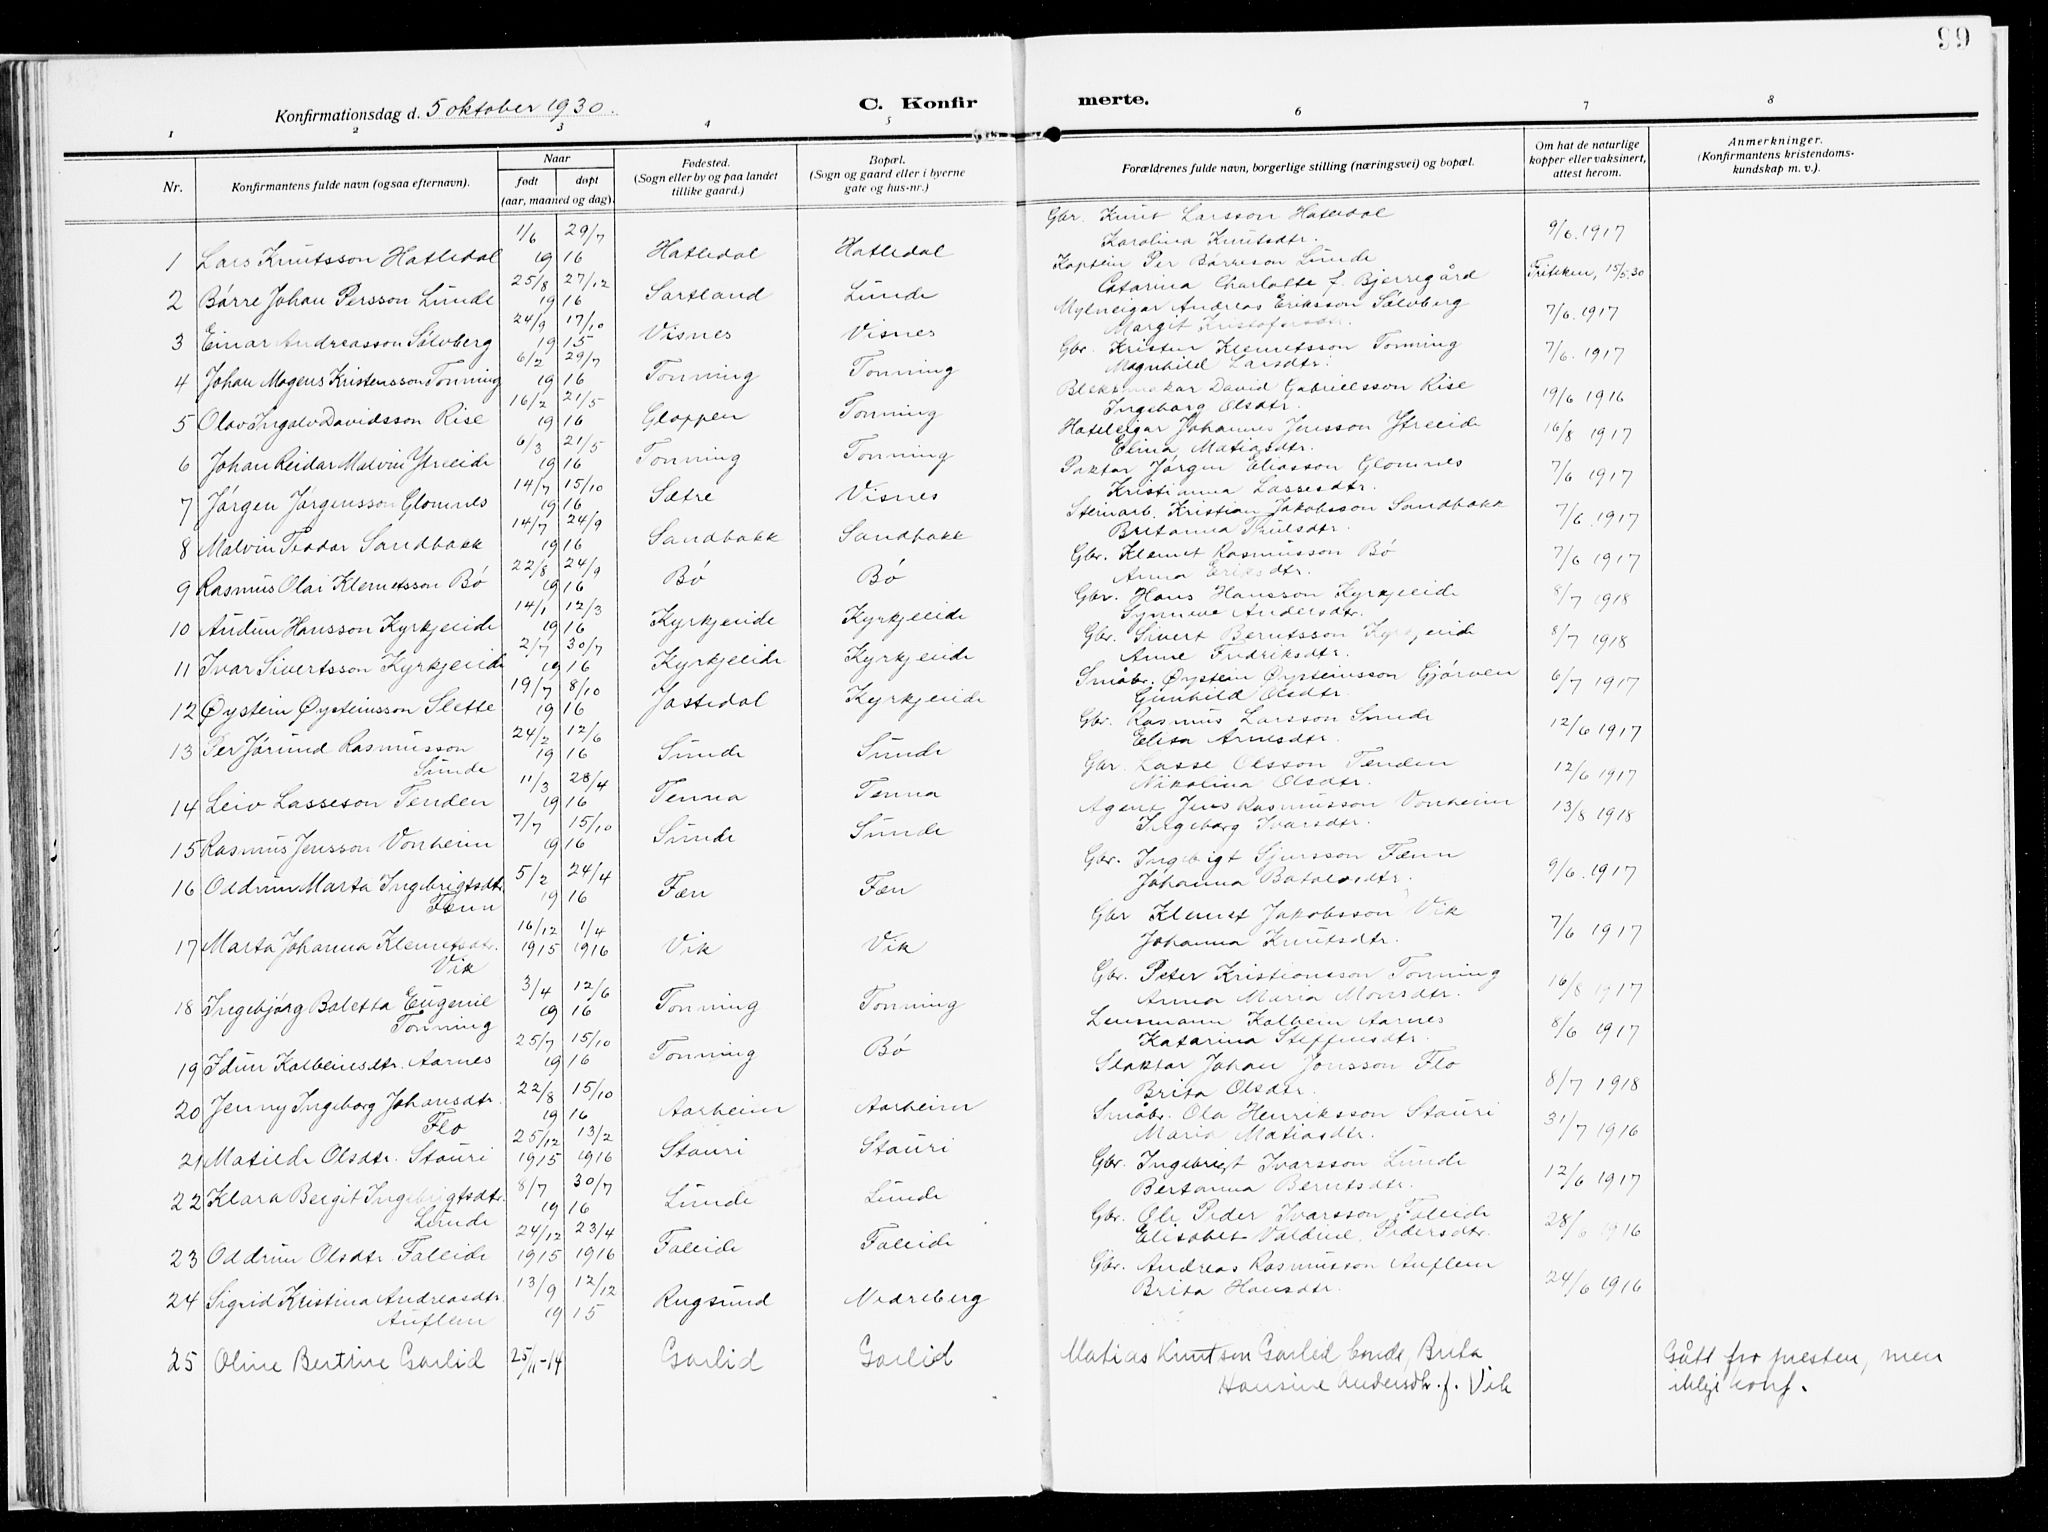 99
Konfirmationsdag d. 5 oktober 1930.
C. Konfirmerte.
1 2 3 4 5 6 7 8
Nr. Konfirmantens fulde navn (ogsaa efternavn). Naar født døpt (aar, maaned og dag). Fødested. (Sogn eller by og paa landet tillike gaard.) Bopæl. (Sogn og gaard eller i byerne gate og hus-nr.) Forældrenes fulde navn, borgerlige stilling (næringsvei) og bopæl. Om hat de naturlige kopper eller vaksinert, attest herom. Anmerkninger. (Konfirmantens kristendomskundskap m. v.).
1 Lars Knutsson Hatledal 1/6 29/7 1916 Hatledal Hatledal Gbr. Knut Larsson Hatledal Karolina Knutsdtr. 9/6.1917
2 Børre Johan Persson Lunde 25/8 27/12 1916 Sartland Lunde Kaptein Per Børreson Lunde Catarina Charlotte f. Bjerregård 15/5.30
3 Einar Andreasson Sølvberg 24/9 17/10 1915 Visnes Visnes Mylneigar Andreas Eriksson Sølvberg Margit Kristofersdtr. 7/6.1917
4 Johan Magnus Kristensson Tonning 6/2 29/7 1916 Tonning Tonning Gbr. Kristen Klemetsson Tonning Magnhild Larsdtr. 7/6.1917
5 Olav Ingolv Davidsson Rise 16/2 21/5 1916 Gloppen Tonning David Gabrielsson Rise Ingeborg Olsdtr. 19/6 1916
6 Johan Reidar Malvin Ytreeide 6/3 21/5 1916 Tonning Tonning Hotelleigar Johannes Jensson Ytreeide Elina Matiasdtr. 16/8 1917
7 Jørgen Jørgensson Glomnes 14/7 15/10 1916 Sætre Visnes Paktar Jørgen Eliasson Glomnes Kristianna Lassesdtr. 7/6 1917
8 Malvin Teodor Sandbakk 14/7 24/9 1916 Sandbakk Sandbakk Steinarb. Kristian Jakobsson Sandbakk Britanna 7/6.1917
9 Rasmus Olai Klemetsson Bø 22/8 24/9 1916 Bø Bø Gbr. Klemet Rasmusson Bø Anna Eriksdtr. 7/6 1917
10 Audun Hansson Kyrkjeeide 14/1 12/3 1916 Kyrkjeeide Kyrkjeeide Gbr. Hans Hansson Kyrkjeeide Synneve Andersdtr. 8/7 1918
11 Ivar Sivertsson Kyrkjeeide 2/7 30/7 1916 Kyrkjeeide Kyrkjeeide Gbr. Sivert Berntsson Kyrkjeeide Anne Fredriksdtr. 8/7 1918
12 Øystein Øysteinsson Slette 19/7 8/10 1916 Jostedal Kyrkjeeide Småbr. Øystein Øysteinsson Gjørven Gunhild Olsdtr. 6/7 1917
13 Per Jørund Rasmusson Sunde 24/2 12/6 1916 Sunde Sunde Gbr. Rasmus Larsson Sunde Elisa Arnesdtr. 12/6 1917
14 Leiv Lasseson Tenden 11/3 28/4 1916 Tenna Tenna Gbr. Lasse Olsson Tenden Nikolina Olsdtr. 12/6 1917
15 Rasmus Jensson Vonheim 7/7 15/10 1916 Sunde Sunde Agent Jens Rasmusson Vonheim Ingeborg Ivarsdtr. 13/8 1918
16 Oddrun Marta Ingebrigtsdtr. Fænn 5/2 24/4 1916 Fæn Fæn Gbr. Ingebrigt Sjursson Fænn Johanna Batolvsdtr. 9/6.1917
17 Marta Johanna Klemetsdtr. Vik 16/12 1915 1/4 1916 Vik Vik Gbr Klemet Jakobsson Vik Johanna Knutsdtr. 7/6 1917
18 Ingebjørg Baletta Eugenie Tonning 3/4 12/6 1916 Tonning Tonning Gbr. Peter Kristiansson Tonning Anna Maria Monsdtr. 16/8 1917
19 Idun Kolbeinsdtr. Aarnes 25/7 15/10 1916 Tonning Bø Lensmann Kolbein Aarnes Katarina Steffensdtr. 8/6 1917
20 Jenny Ingeborg Johansdtr. Flo 22/8 15/10 1916 Aarheim Aarheim Slaktar Johan Jonsson Flo Brita Olsdtr. 8/7 1918
21 Matilde Olsdtr. Stauri 25/12 1915 13/2 1916 Stauri Stauri Småbr. Ola Henriksson Stauri Maria Matiasdtr. 31/7 1916
22 Klara Bergit Ingebrigtsdtr. Lunde 8/7 30/7 1916 Lunde Lunde Gbr. Ingebrigt Ivarsson Lunde Bertanna Berntsdtr. 12/6 1917
23 Oddrun Olsdtr. Faleide 24/12 1915 23/4 1916 Faleide Faleide Gbr. Ole Peder Ivarsson Faleide Elisabet Valdine Pedersdtr. 28/6 1916
24 Sigrid Kristina Andreasdtr. Auflem 13/9 12/12 1915 Rugsund Nedreberg Gbr. Andreas Rasmusson Auflem Brita Hansdtr. 24/6 1916
25 Oline Bertine Garlid 25/11-14 Garlid Garlid Matias Knutson Garlid bonde, Brita Hansine Andersdtr. f. Vik Gått fro presten, men ikkje konf.